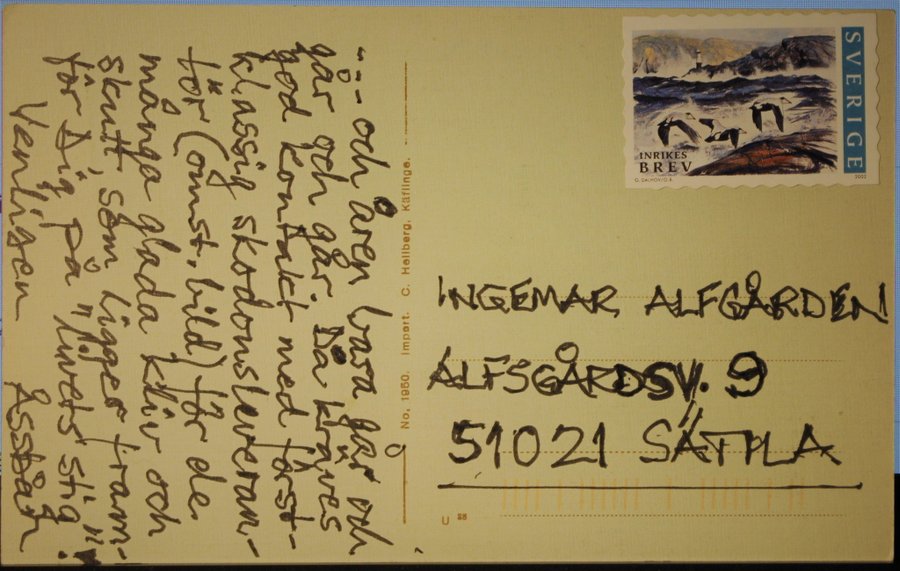 --- och åren bara går och
går och går. Då krävs
god kontakt med först-
klassig skodonsleveran-
tör (omst. bild) för de
många glada kliv och
skutt, som ligger fram-
för Dig på "livets stig"!
Vänligen
No. 1950. Import. C. Hellberg, Käflinge.
SVERIGE
INRIKES
BREV
2002
INGEMAR ALFGÅRDEN
ALFSGÅRDSV. 9
51021 SÄTILA
U